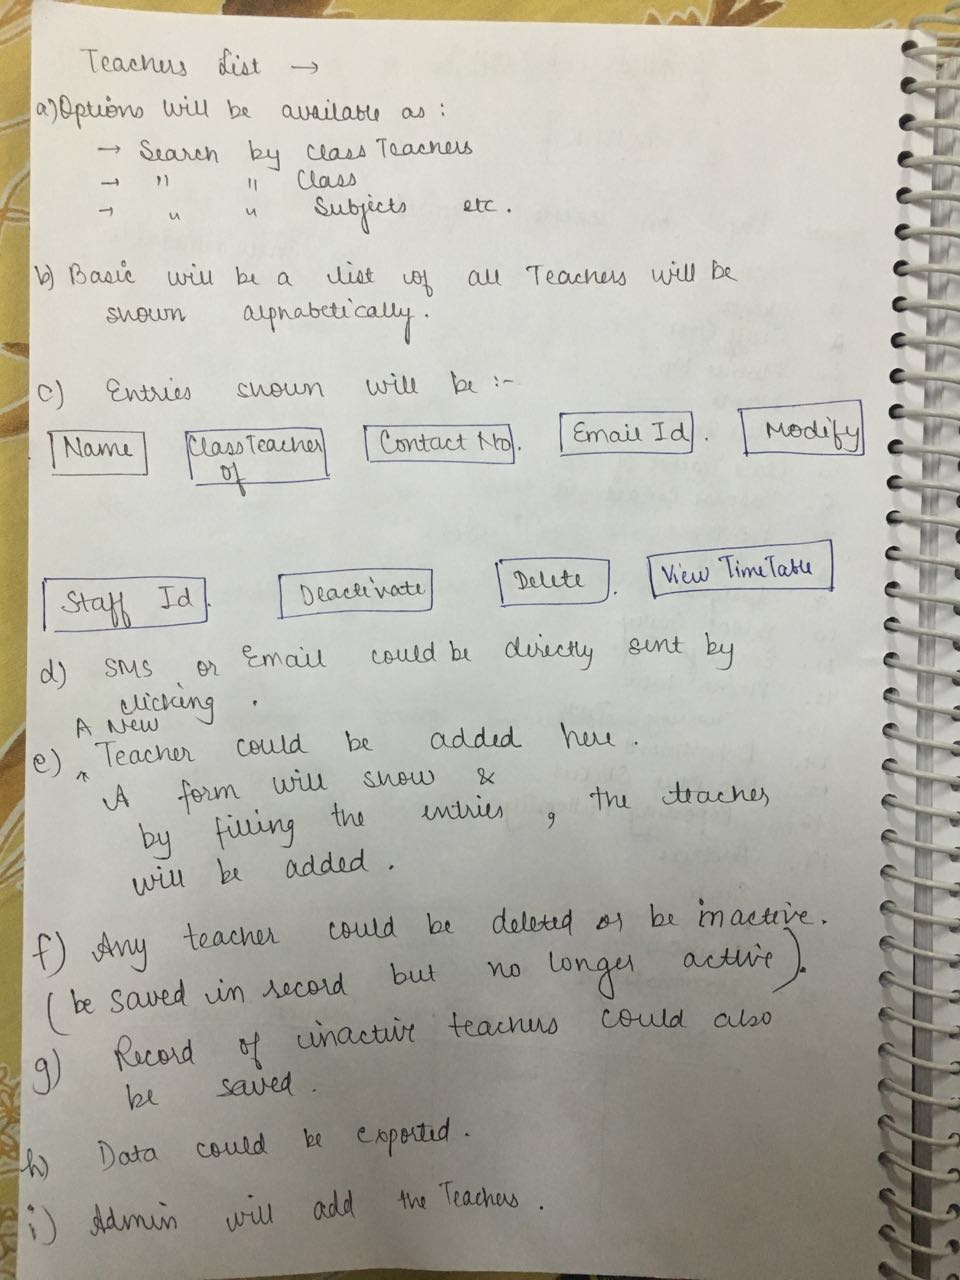 Teachers List →
a) Options will be available as :
→ Search by Class Teachers
→ " " Class
→ " " Subjects etc.
b) Basic will be a list of all Teachers will be
shown alphabetically.
c) Entries shown will be :-
Name Class Teacher of Contact No. Email Id. Modify
Staff Id. Deactivate Delete. View TimeTable
d) SMS or Email could be directly sent by
clicking.
A New
e) ^ Teacher could be added here.
A form will show &
by filling the entries, the teacher
will be added.
f) Any teacher could be deleted or be inactive.
(be saved in record but no longer active).
g) Record of inactive teachers could also
be saved.
h) Data could be exported.
i) Admin will add the Teachers.